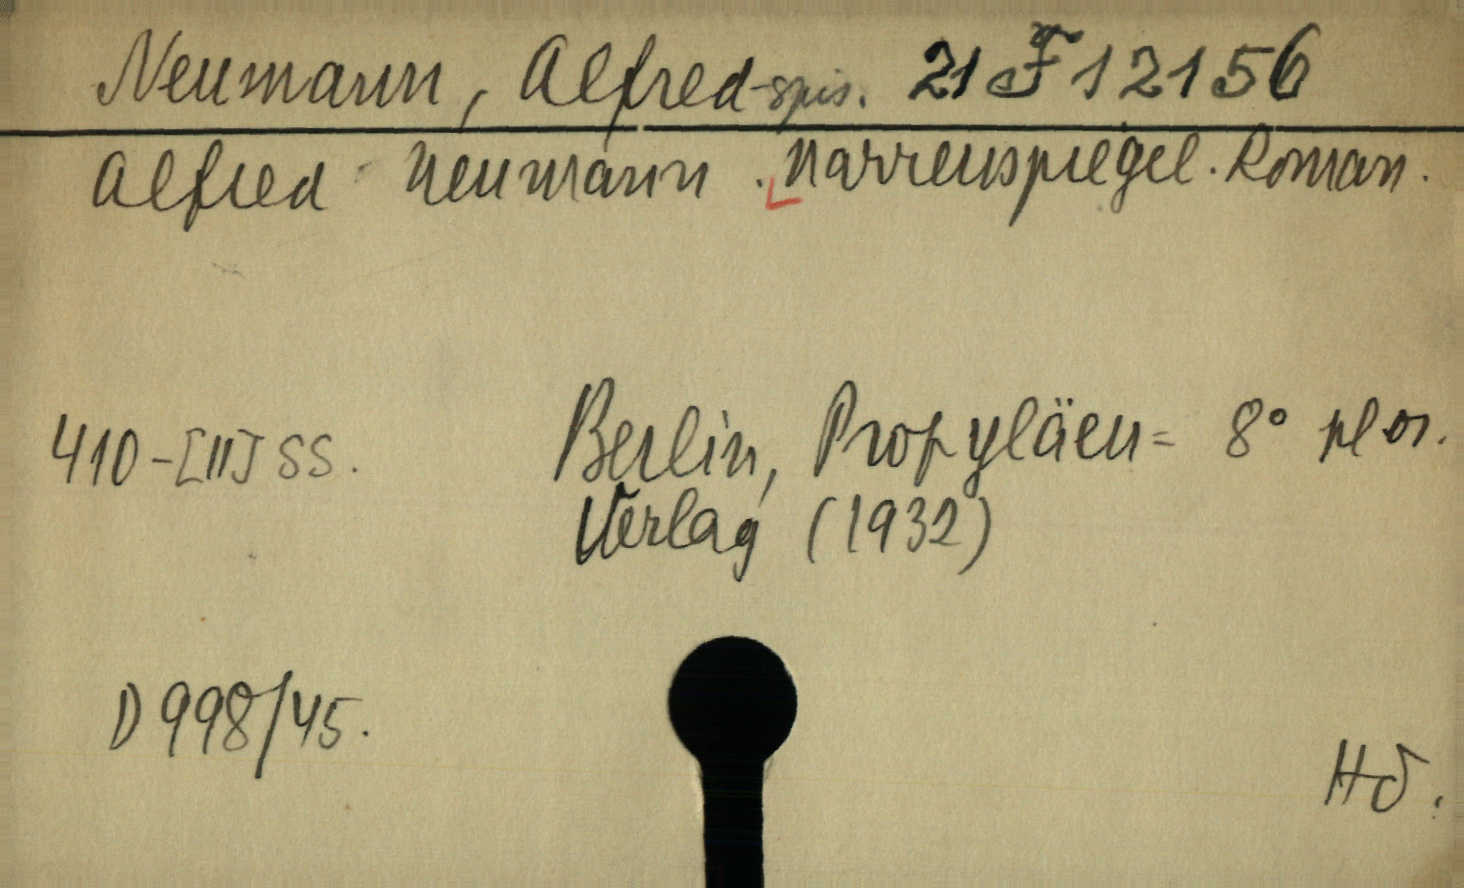 Neumann, Alfred-spis. 21 F 12156
Alfred Neumann. Narrenspiegel. Roman.
410-[II] SS. Berlin, Propyläen= 8° pl or.
Verlag (1932)
D 998/45.